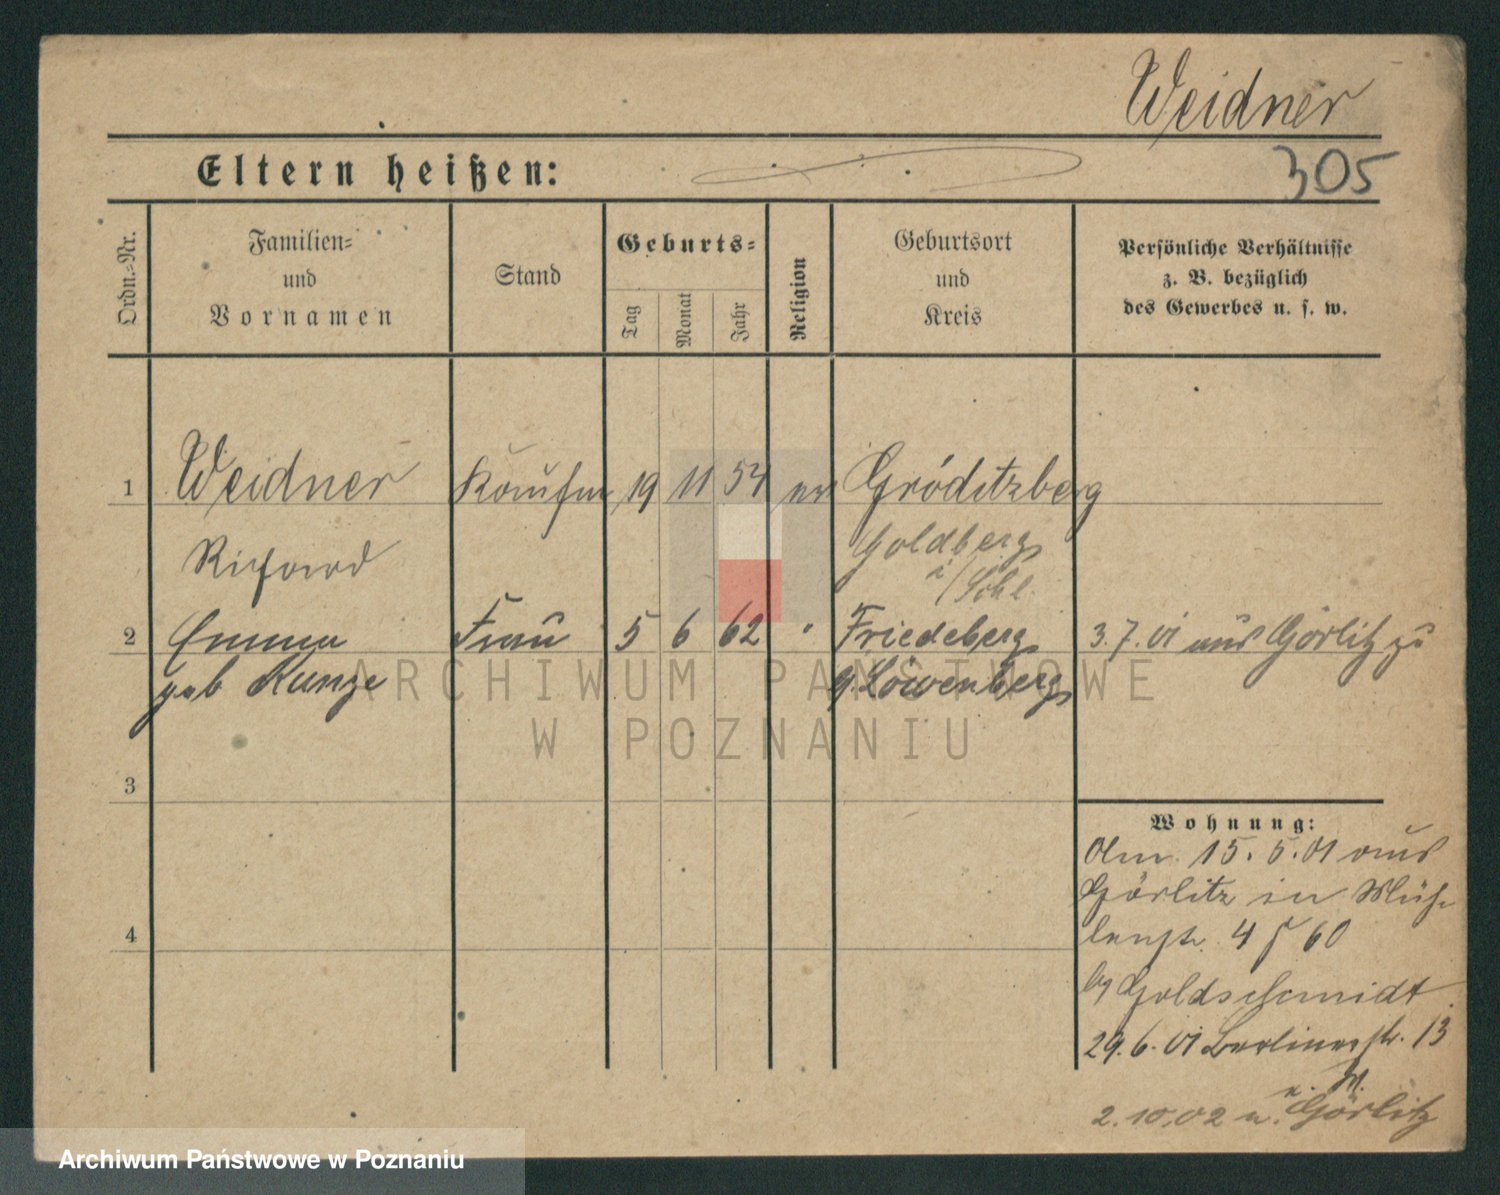 Weidner
305
Eltern heißen:
Ordn.=Nr.
Familien=
und
Vornamen
Stand
Geburts=
Tag
Monat
Jahr
Religion
Geburtsort
und
Kreis
Persönliche Verhältnisse
z. B. bezüglich
des Gewerbes u. s. w.
1 Weidner Kaufm 19 11 54 ev Gröditzberg
Richard Goldberg
i/Schl.
2 Emma Frau 5 6 62 " Friedeberg 3.7.01 aus Görlitz zu
geb Kunze Löwenberg
3
4
Wohnung:
Am 15.5.01 aus
Görlitz in Müh-
lenstr. 4 60
by Goldschmidt
29.6.01 Berlinerstr. 13
2.10.02 n. Görlitz
ARCHIWUM PAŃSTWOWE
W POZNANIU
Archiwum Państwowe w Poznaniu